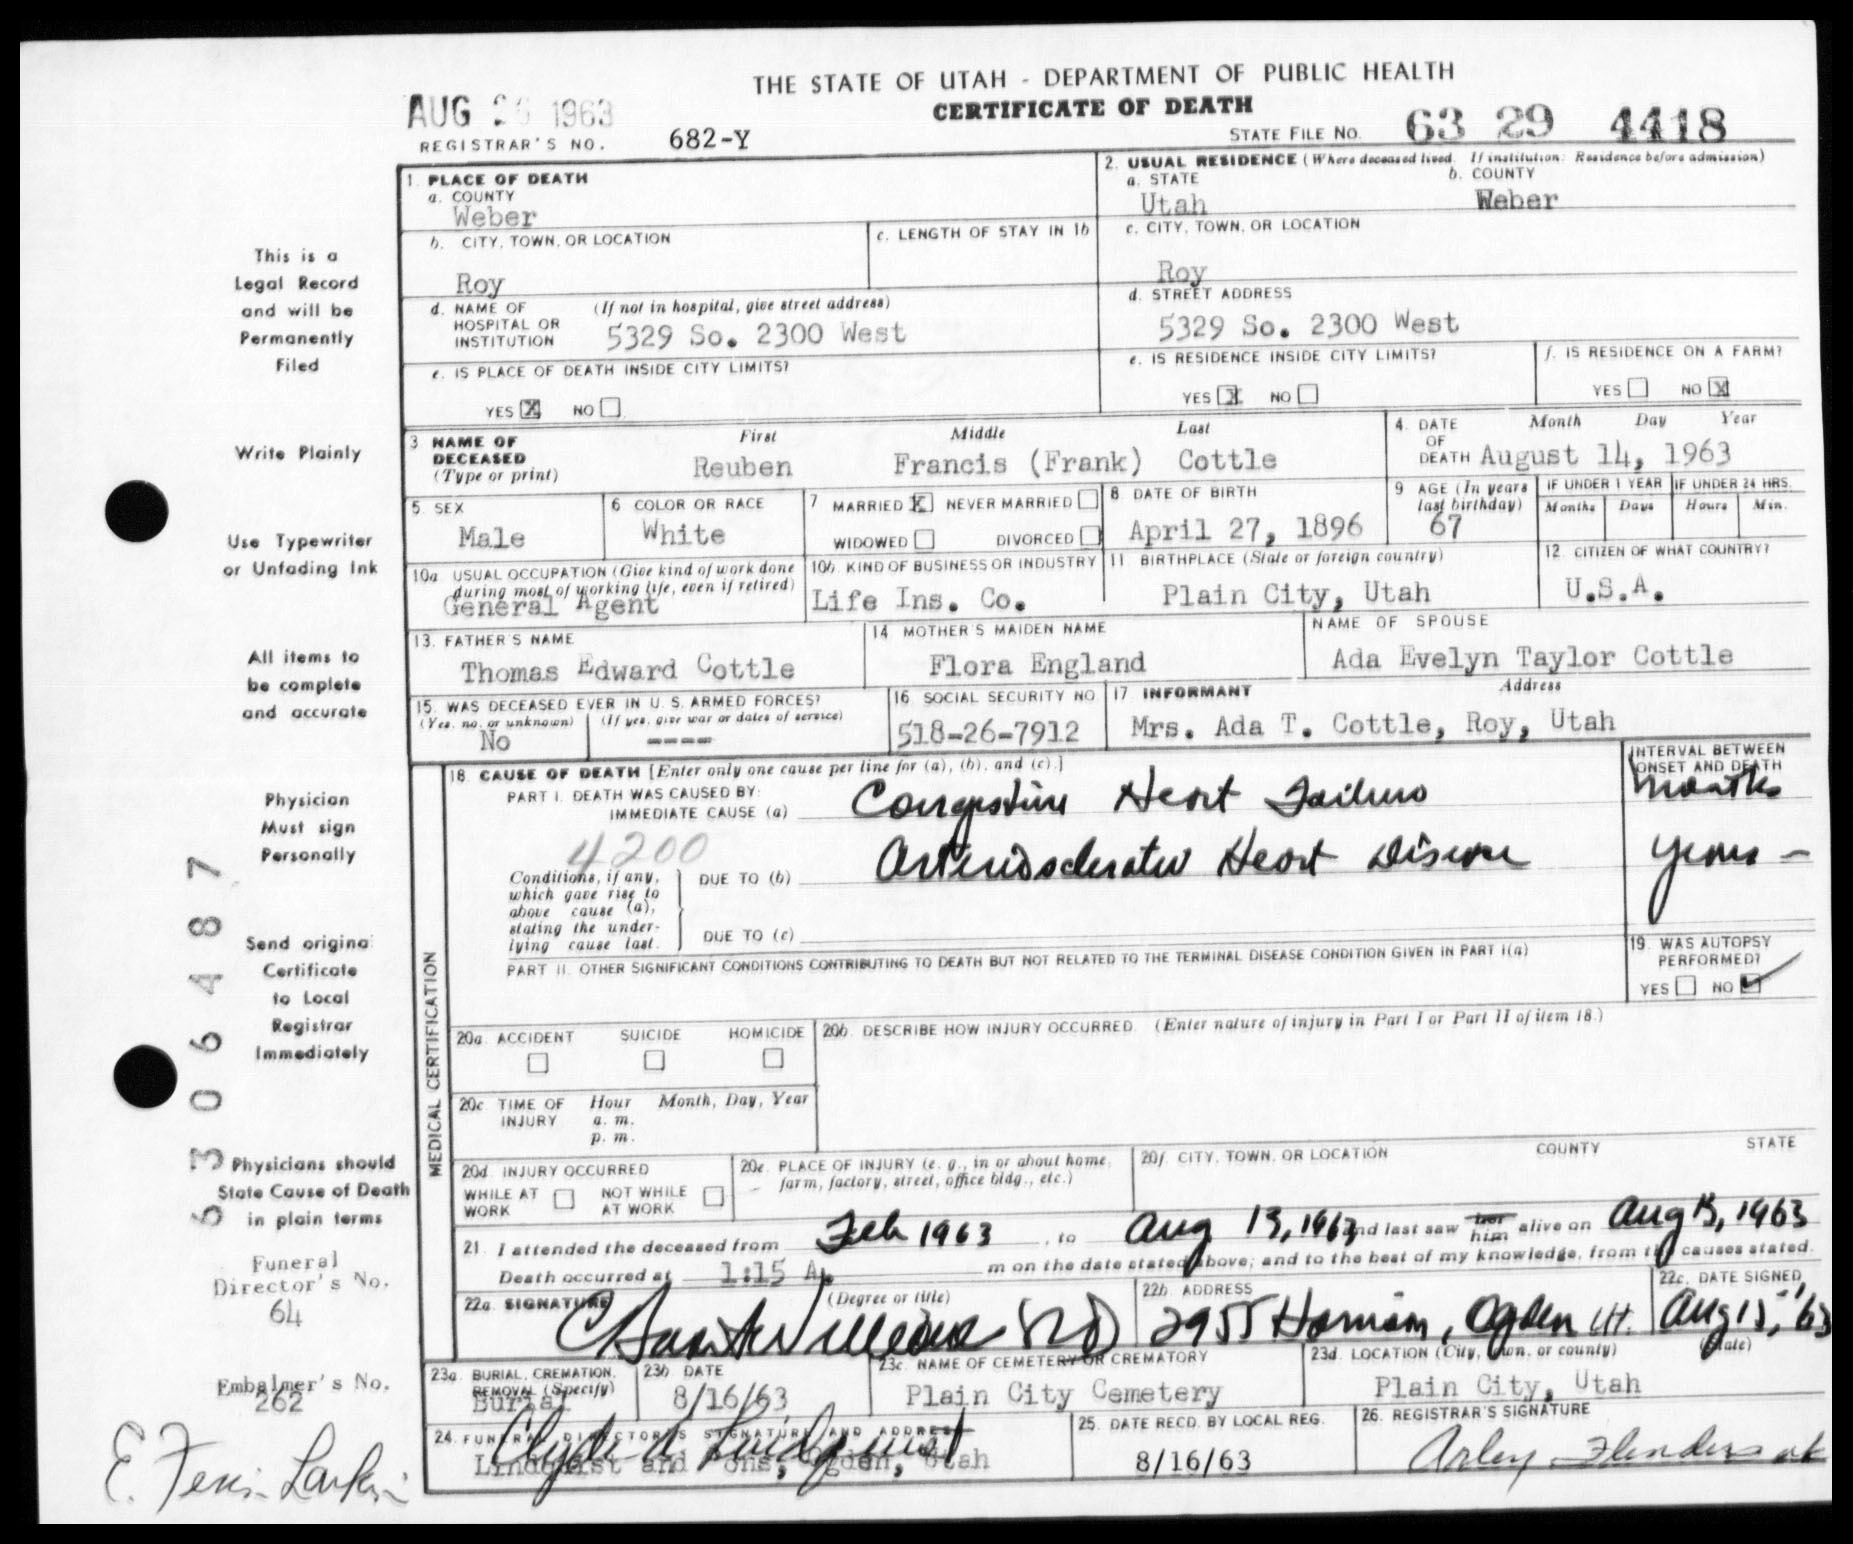 THE STATE OF UTAH - DEPARTMENT OF PUBLIC HEALTH
CERTIFICATE OF DEATH
AUG 1963
REGISTRAR'S NO. 682-Y
STATE FILE NO. 63 29 4418
1. PLACE OF DEATH
a. COUNTY
Weber
2. USUAL RESIDENCE (Where deceased lived. If institution: Residence before admission)
a. STATE
Utah
b. COUNTY
Weber
b. CITY, TOWN, OR LOCATION
Roy
c. LENGTH OF STAY IN 1b
c. CITY, TOWN, OR LOCATION
Roy
d. NAME OF HOSPITAL OR INSTITUTION (If not in hospital, give street address)
5329 So. 2300 West
d. STREET ADDRESS
5329 So. 2300 West
e. IS PLACE OF DEATH INSIDE CITY LIMITS?
YES X NO
e. IS RESIDENCE INSIDE CITY LIMITS?
YES X NO
f. IS RESIDENCE ON A FARM?
YES NO X
3 NAME OF DECEASED (Type or print)
First Middle Last
Reuben Francis (Frank) Cottle
4. DATE OF DEATH Month Day Year
August 14, 1963
5. SEX
Male
6 COLOR OR RACE
White
7 MARRIED X NEVER MARRIED
WIDOWED DIVORCED
8. DATE OF BIRTH
April 27, 1896
9 AGE (In years last birthday)
67
IF UNDER 1 YEAR
Months Days
IF UNDER 24 HRS.
Hours Min.
10a USUAL OCCUPATION (Give kind of work done during most of working life, even if retired)
General Agent
10b. KIND OF BUSINESS OR INDUSTRY
Life Ins. Co.
11. BIRTHPLACE (State or foreign country)
Plain City, Utah
12. CITIZEN OF WHAT COUNTRY?
U.S.A.
13. FATHER'S NAME
Thomas Edward Cottle
14 MOTHER'S MAIDEN NAME
Flora England
NAME OF SPOUSE
Ada Evelyn Taylor Cottle
15. WAS DECEASED EVER IN U. S. ARMED FORCES?
(Yes, no, or unknown) (If yes, give war or dates of service)
No ----
16 SOCIAL SECURITY NO
518-26-7912
17 INFORMANT Address
Mrs. Ada T. Cottle, Roy, Utah
18. CAUSE OF DEATH [Enter only one cause per line for (a), (b), and (c).]
INTERVAL BETWEEN ONSET AND DEATH
PART I. DEATH WAS CAUSED BY:
IMMEDIATE CAUSE (a) Congestive Heart Failure
months
4200
Conditions, if any, which gave rise to above cause (a), stating the underlying cause last.
DUE TO (b) Arteriosclerotic Heart Disease
years -
DUE TO (c)
PART II. OTHER SIGNIFICANT CONDITIONS CONTRIBUTING TO DEATH BUT NOT RELATED TO THE TERMINAL DISEASE CONDITION GIVEN IN PART I(a)
19. WAS AUTOPSY PERFORMED?
YES NO
MEDICAL CERTIFICATION
20a. ACCIDENT SUICIDE HOMICIDE
20b. DESCRIBE HOW INJURY OCCURRED. (Enter nature of injury in Part I or Part II of item 18.)
20c TIME OF INJURY Hour Month, Day, Year
a. m.
p. m.
20d. INJURY OCCURRED
WHILE AT WORK NOT WHILE AT WORK
20e. PLACE OF INJURY (e. g., in or about home, farm, factory, street, office bldg., etc.)
20f. CITY, TOWN, OR LOCATION COUNTY STATE
21. I attended the deceased from Feb 1963, to Aug 13, 1963 and last saw her him alive on Aug 13, 1963
Death occurred at 1:15 A. m on the date stated above; and to the best of my knowledge, from the causes stated.
22a. SIGNATURE (Degree or title)
22b. ADDRESS
2955 Harrison, Ogden Ut.
22c. DATE SIGNED
Aug 15, '63
(Date)
23a. BURIAL, CREMATION, REMOVAL (Specify)
Burial
23b DATE
8/16/63
23c. NAME OF CEMETERY OR CREMATORY
Plain City Cemetery
23d. LOCATION (City, town, or county)
Plain City, Utah
24. FUNERAL DIRECTOR'S SIGNATURE AND ADDRESS
Clyde A Lindquist
Lindquist and Sons, Ogden, Utah
25. DATE RECD. BY LOCAL REG.
8/16/63
26. REGISTRAR'S SIGNATURE
Arley Flinders
This is a
Legal Record
and will be
Permanently
Filed
Write Plainly
Use Typewriter
or Unfading Ink
All items to
be complete
and accurate
Physician
Must sign
Personally
Send original
Certificate
to Local
Registrar
Immediately
Physicians should
State Cause of Death
in plain terms
Funeral
Director's No.
64
Embalmer's No.
262
E. Larkin
6306487